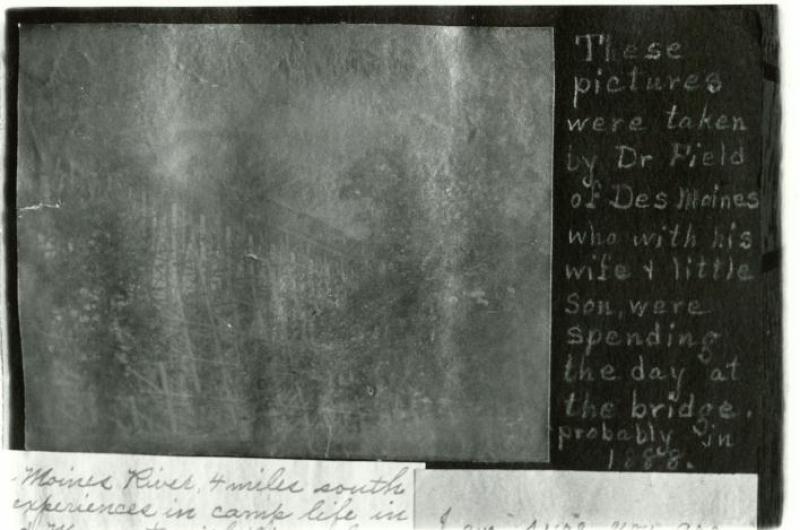 These
pictures
were taken
by Dr Field
of Des Moines
who with his
wife & little
son, were
spending
the day at
the bridge.
probably in
1888.
Moines River, 4 miles south
experiences in camp life in
I am sure you